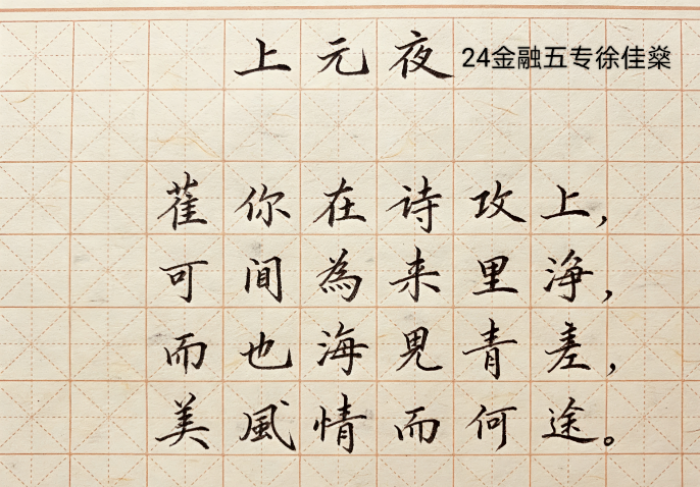 上元夜 24金融五专徐佳燊
萑你在诗攻上，
可间為来里浄，
而也海見青差，
美風情而何途。